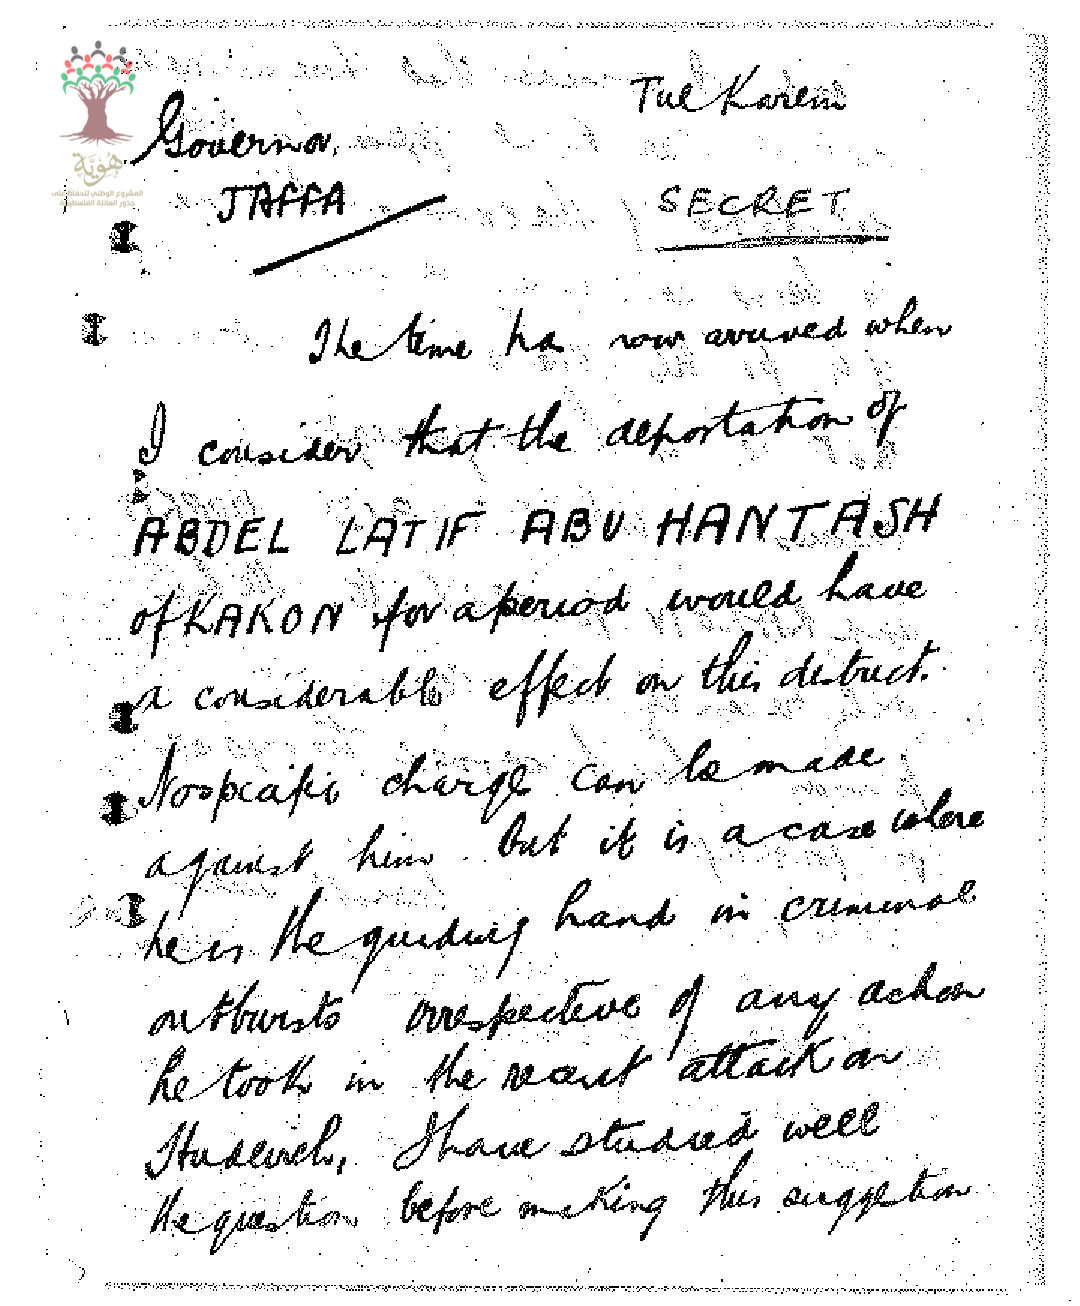 Tul Karem
Governor,
JAFFA
SECRET
هُوِيَّة
المشروع الوطني للحفاظ على
جذور العائلة الفلسطينية
The time has now arrived when
I consider that the deportation of
ABDEL LATIF ABU HANTASH
of KAKON for a period would have
a considerable effect on this district.
No specific charge can be made
against him but it is a case where
he is the guiding hand in criminal
outbursts irrespective of any action
he took in the recent attack on
I have studied well
the question before making this suggestion